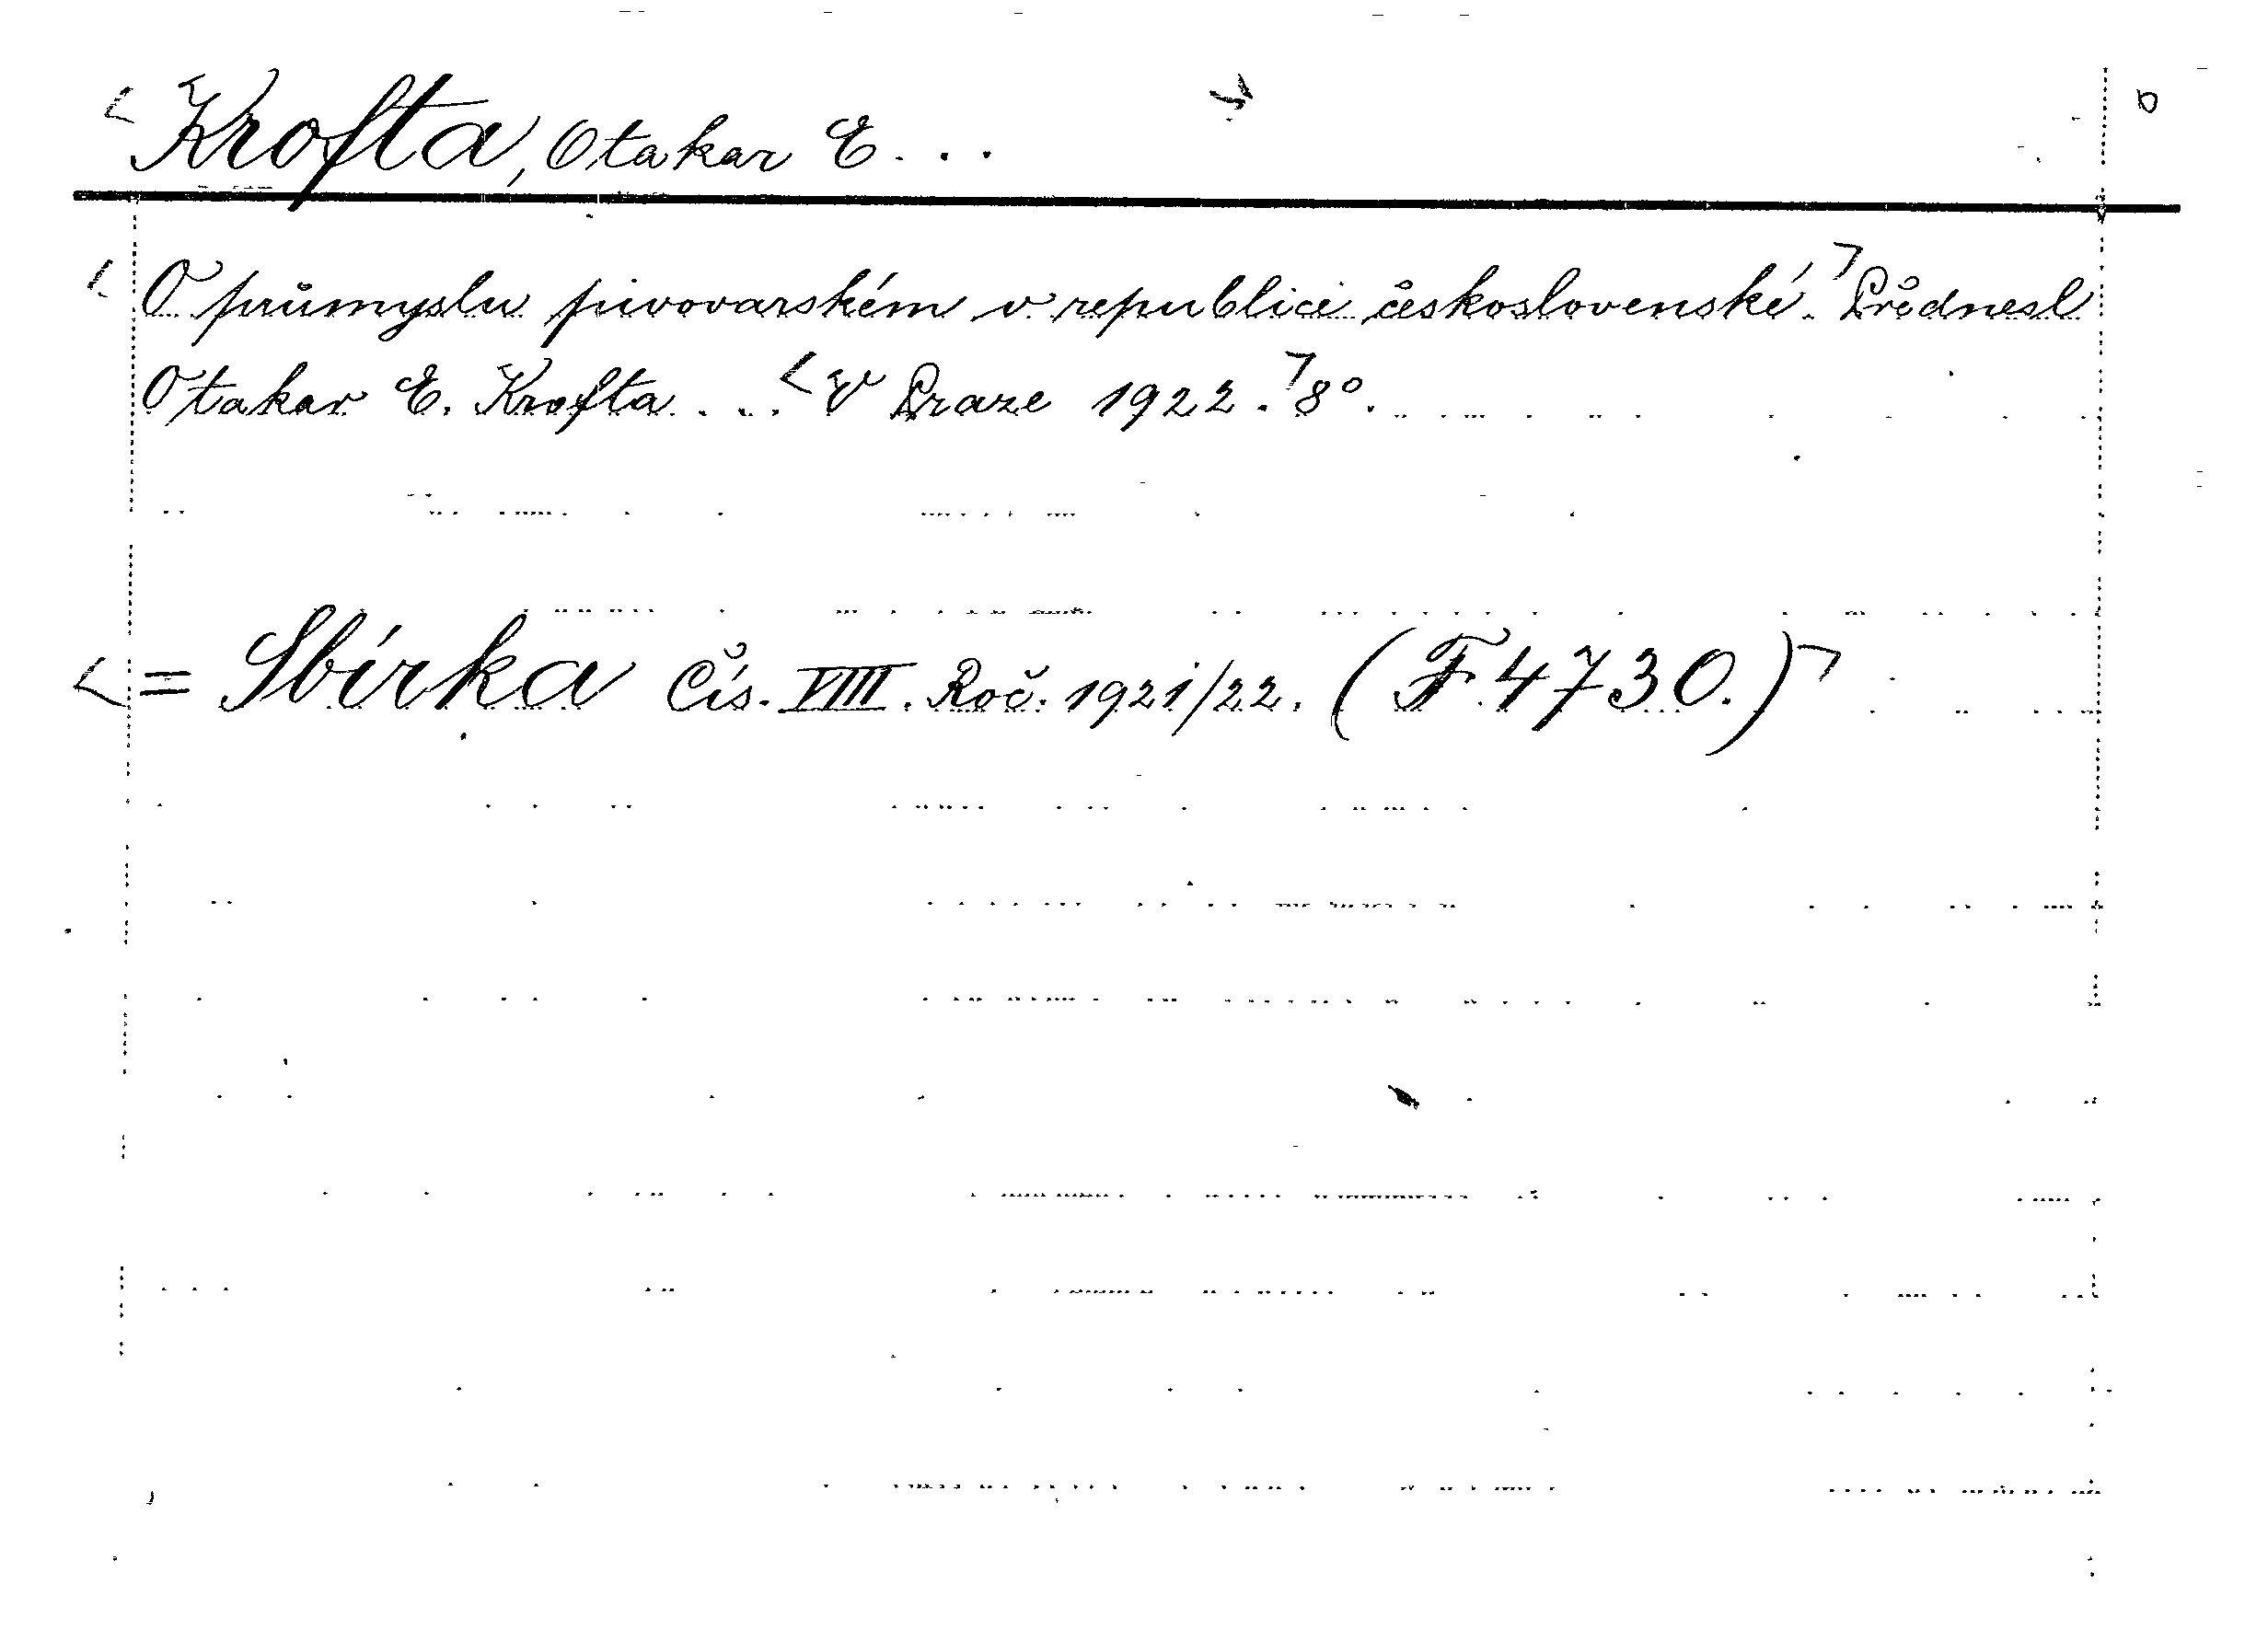 Krofta, Otakar E. . .
O průmyslu pivovarském v republice československé. Přednesl
Otakar E. Krofta . . . V Praze 1922. 8°.
= Sbírka Čís. VIII. Roč. 1921/22. (F.4730.)